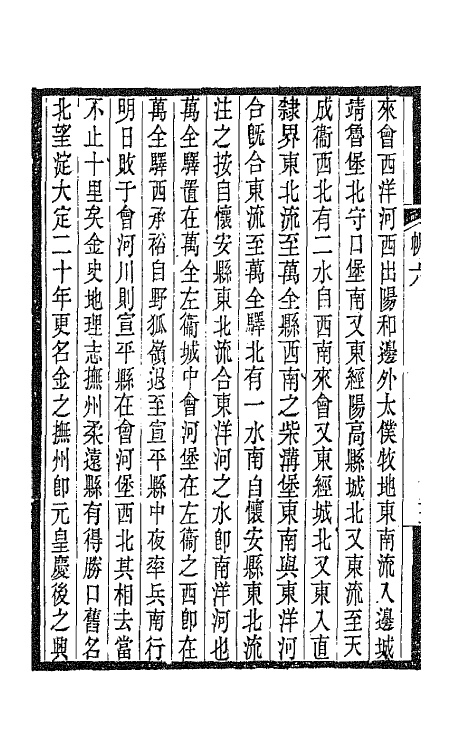 來會西洋河西出陽和邊外太僕牧地東南流入邊城
靖魯堡北守口堡南又東經陽高縣城北又東流至天
成衞西北有二水自西南來會又東經城北又東入直
隸界東北流至萬全縣西南之柴溝堡東南與東洋河
合旣合東流至萬全驛北有一水南自懷安縣東北流
注之按自懷安縣東北流合東洋河之水卽南洋河也
萬全驛置在萬全左衞城中會河堡在左衞之西卽在
萬全驛西承裕自野狐嶺退至宣平縣中夜率兵南行
明日敗于會河川則宣平縣在會河堡西北其相去當
不止十里矣金史地理志撫州柔遠縣有得勝口舊名
北望淀大定二十年更名金之撫州卽元皇慶後之興